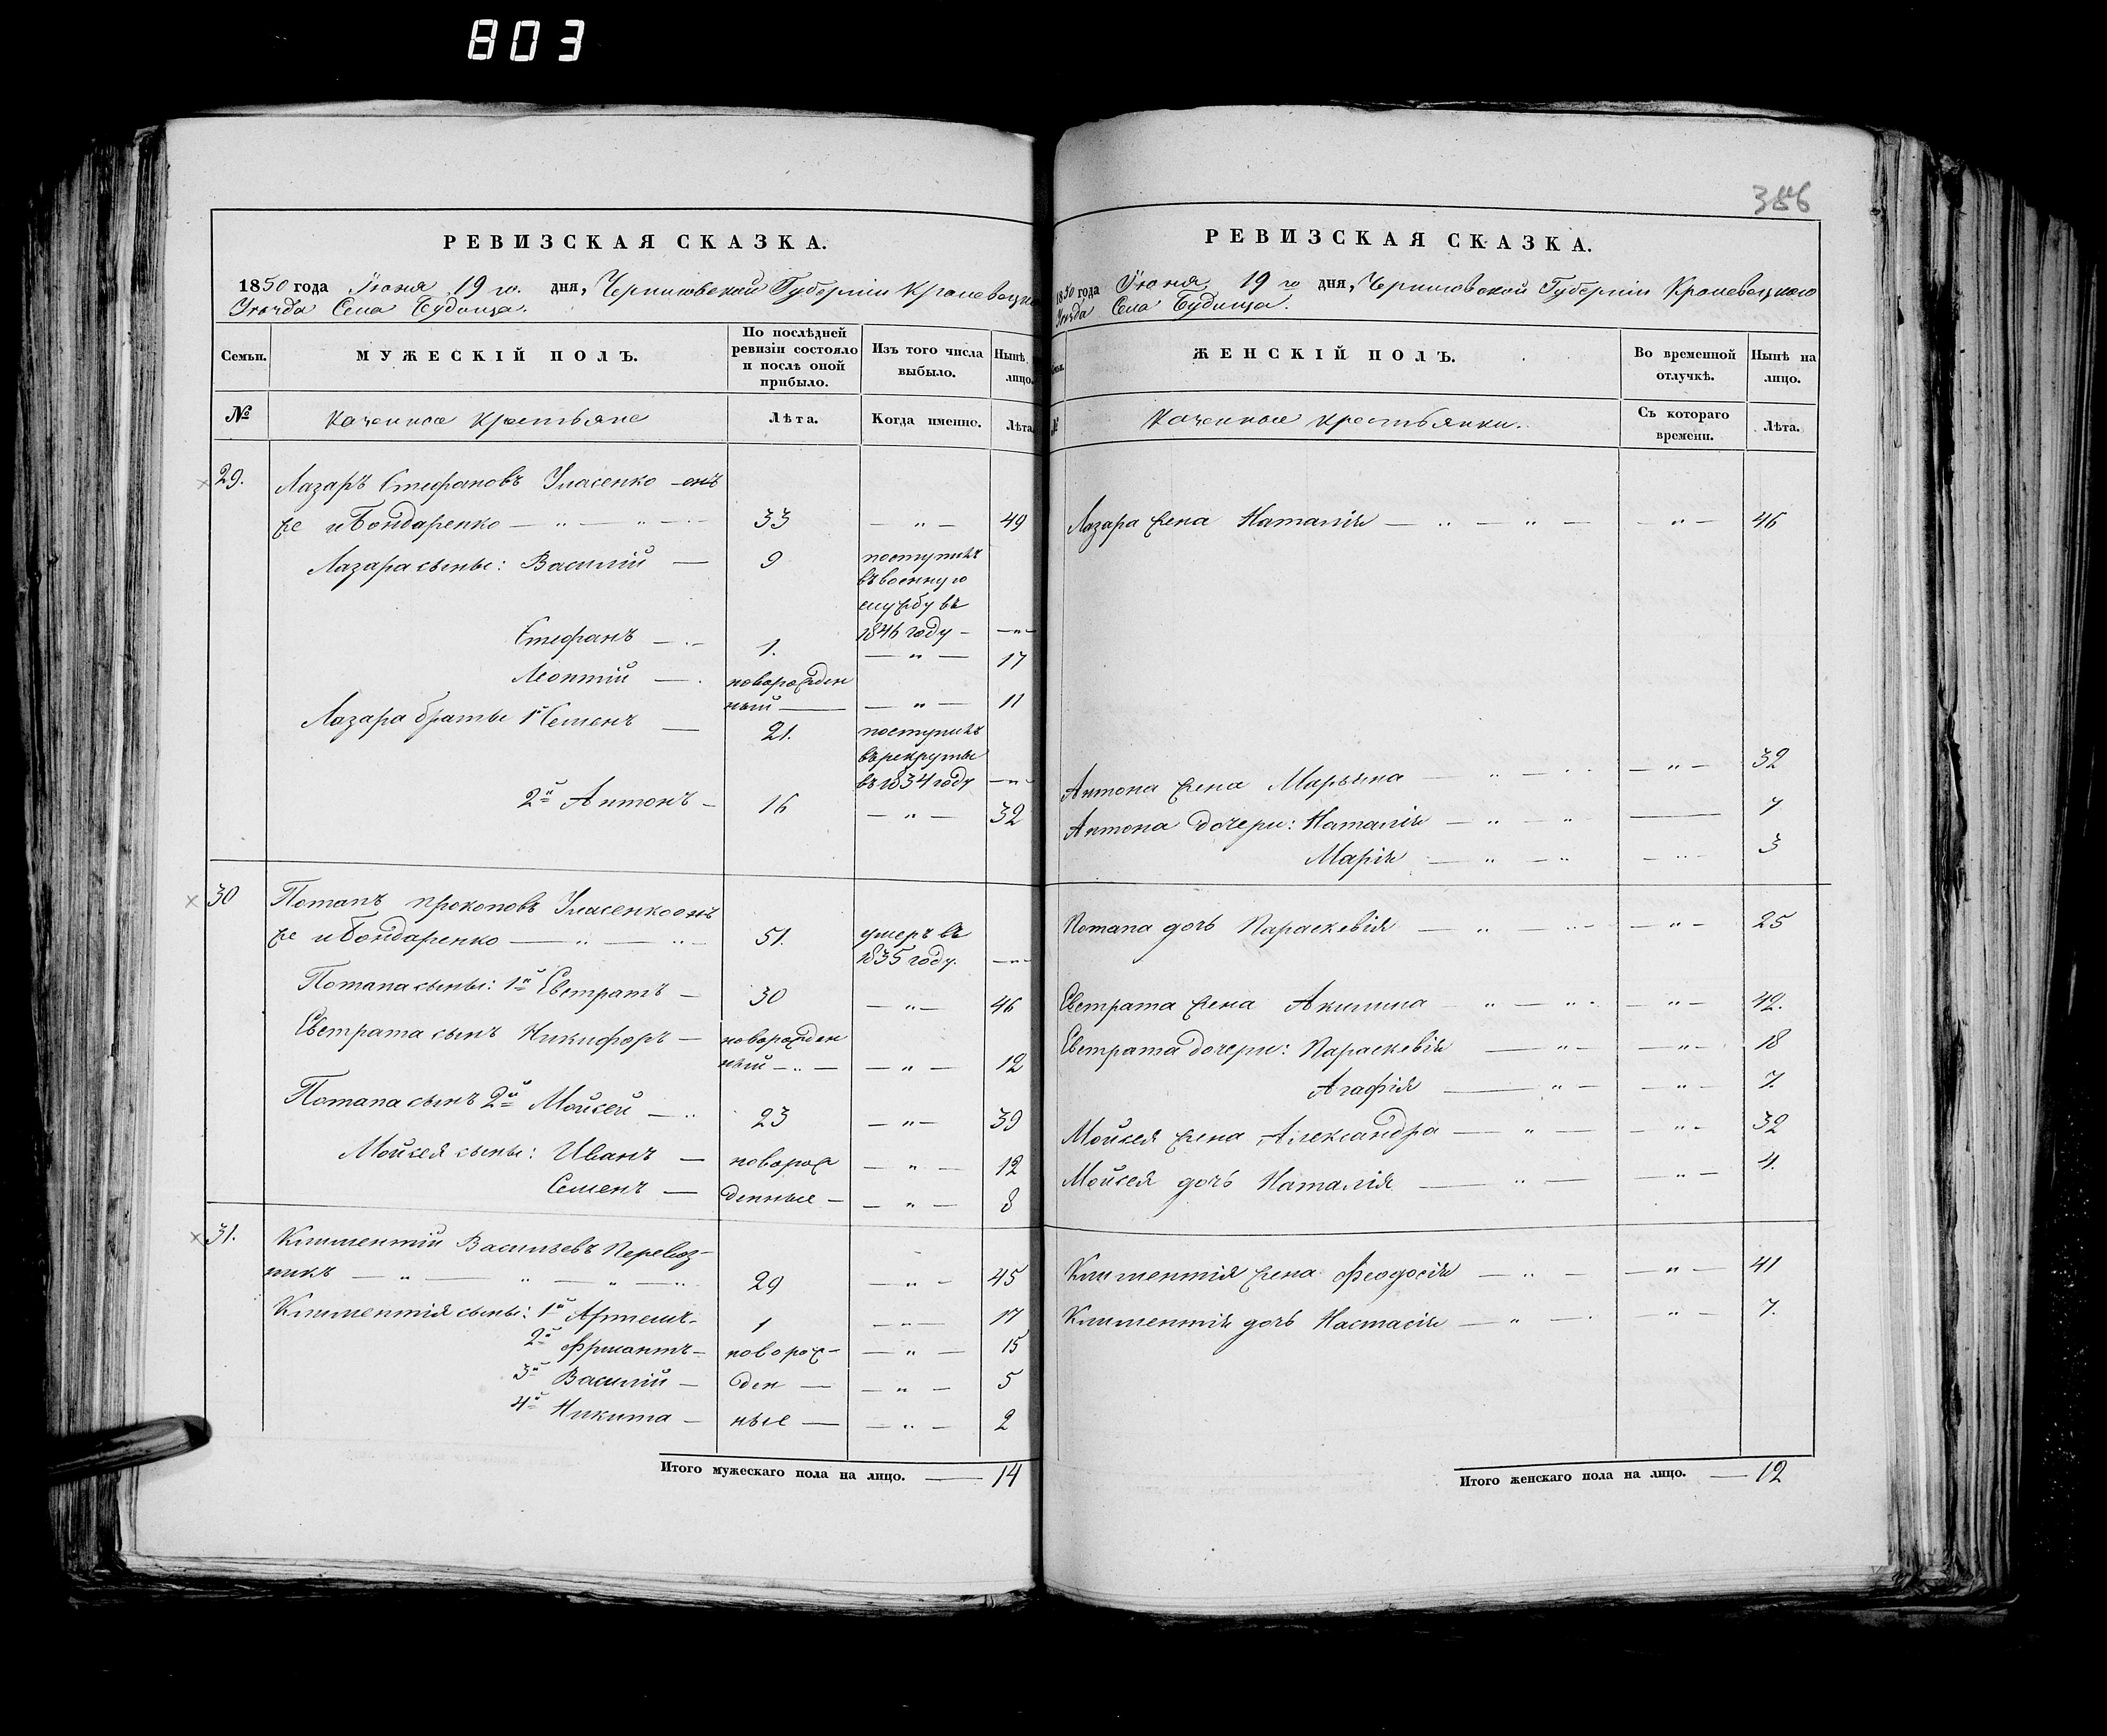 803
РЕВИЗСКАЯ СКАЗКА.
1850 года Июня 19 го. дня, Черниговской Губерніи Кролевецкаго
Уѣзда Села Будища.
Семьи.
МУЖЕСКІЙ ПОЛЪ.
По послѣдней
ревизіи состояло
и послѣ оной
прибыло.
Изъ того числа
выбыло.
Нынѣ
лицо.
№
Казенные Крестьяне
Лѣта.
Когда именно.
Лѣта.
29.
Лазаръ Стефановъ Уласенко онъ
же и Бондаренко 33 49
Лазара сыны: Василій 9 поступилъ
въ военную
службу въ
1846 году
Стефанъ 1. 17
Леонтій новорожден
ный 11
Лазара братья 1й Семенъ 21. поступилъ
въ рекруты
въ 1834 году
2й Антонъ 16 32
30
Потапъ Прокоповъ Уласенко онъ
же и Бондаренко 51. умеръ въ
1835 году.
Потапа сыны: 1й Евстратъ 30 46
Евстрата сынъ Никифоръ новорожден
ный 12
Потапа сынъ 2й Мойсей 23 39
Мойсея сыны: Иванъ новорож 12
Семенъ денные 8
31.
Климентій Васильевъ Перевоз-
никъ 29 45
Климентія сыны: 1й Артемъ 1 17
2й новорож- 15
3й Василій ден 5
4й Никита ные 2
Итого мужескаго пола на лицо. 14
386
РЕВИЗСКАЯ СКАЗКА.
1850 года Июня 19 го дня, Черниговской Губерніи Кролевецкаго
Уѣзда Села Будища.
ЖЕНСКІЙ ПОЛЪ.
Во временной
отлучкѣ.
Нынѣ на
лицо.
№
Казенные крестьянки.
Съ котораго
времени.
Лѣта.
Лазара жена Наталія 46
Антона жена Марьяна 32
Антона дочери: Наталія 7
Марія 3
Потапа дочь Параскевія 25
Евстрата жена Акилина 42.
Евстрата дочери: Параскевія 18
Агафія 7.
Мойсея жена Александра 32
Мойсея дочь Наталія 4.
Климентія жена Феодосія 41
Климентія дочь Настасія 7.
Итого женскаго пола на лицо. 12